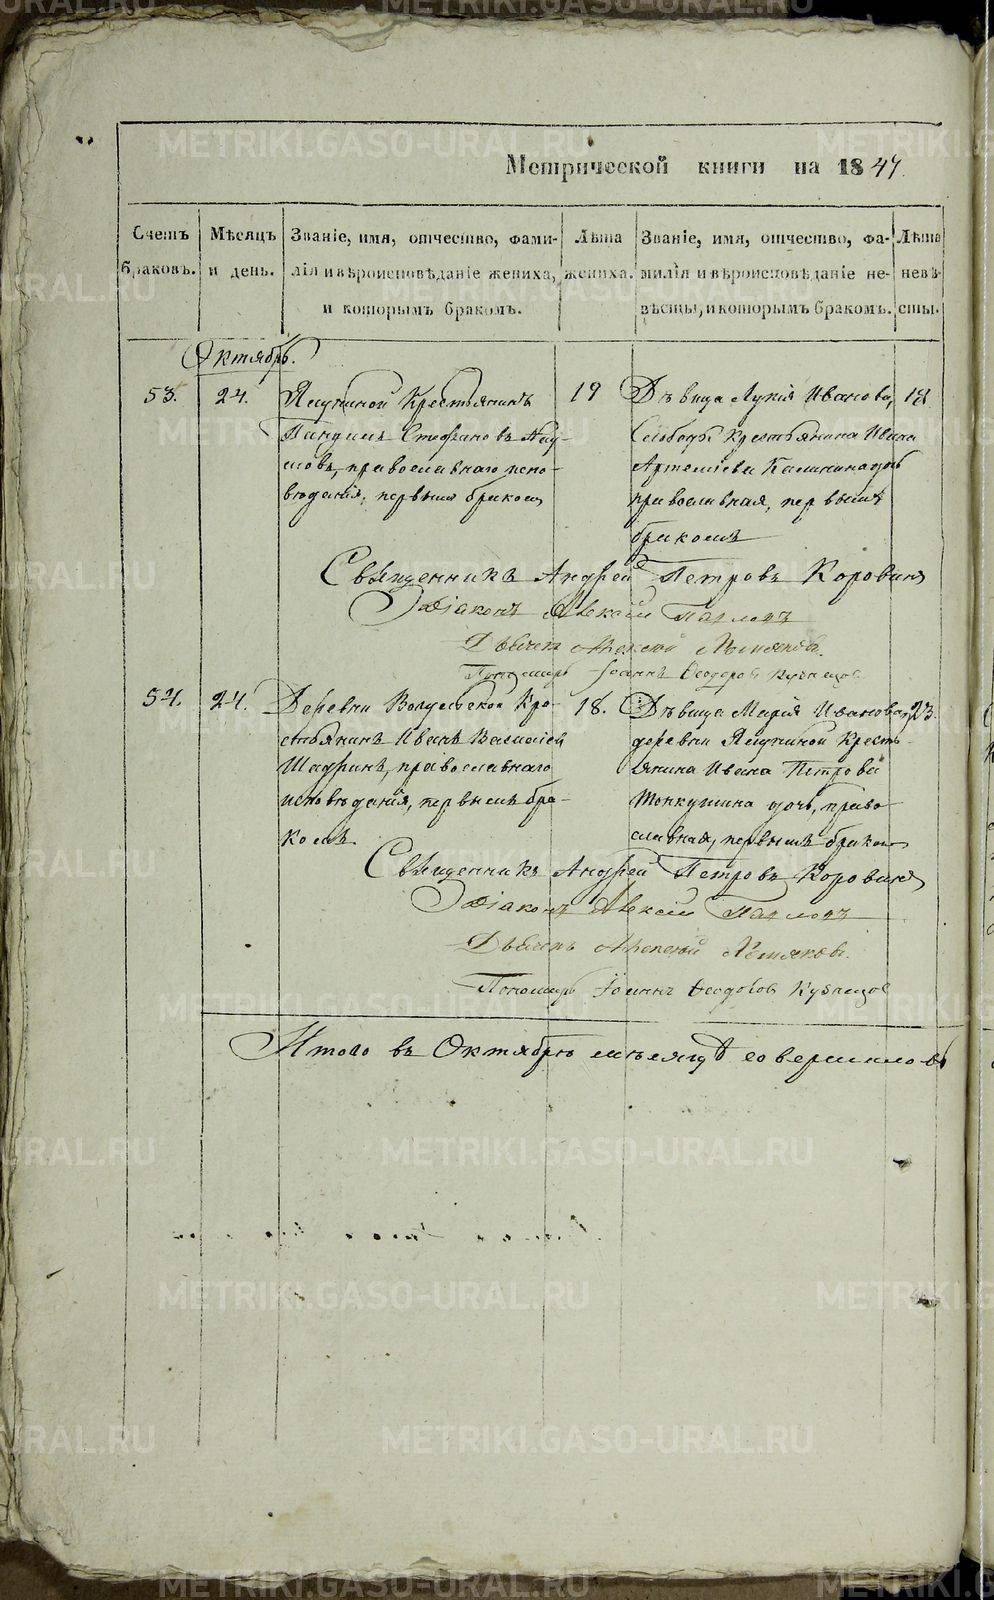 Метрической книги на 1847.
Счетъ браковъ.
Мѣсяцъ и день.
Званіе, имя, отчество, фамилія и вѣроисповѣданіе жениха, и которымъ бракомъ.
Лѣта жениха.
Званіе, имя, отчество, фамилія и вѣроисповѣданіе невѣсты, и которымъ бракомъ.
Лѣта невѣсты.
Октябрь.
53.
24.
Крестьянинъ
Стефановъ
православнаго испо-
вѣданія, первымъ бракомъ
19
Дѣвица Лукія Иванова,
Слободы крестьянина Ивана
Артеміева Калинина дочь
православная, первымъ
бракомъ
18
Священникъ Андрей Петровъ Коровинъ
Діаконъ Алексій Павловъ
Дьячекъ
Пономарь Іоаннъ Ѳеодоровъ Кузнецов
54.
24.
Деревни Кре-
стьянинъ Иванъ Василіев
Шафринъ, православнаго
исповѣданія, первымъ бра-
комъ.
18.
Дѣвица Марія Иванова,
деревни Яшкиной кресть-
янина Ивана Петрова
Тонкушина дочь, право-
славная, первымъ браком
23.
Священникъ Андрей Петровъ Коровинъ
Діаконъ Алексій Павловъ
Дьячекъ
Пономарь Іоаннъ Ѳеодоров Кузнецов
Итого въ Октябрѣ мѣсяцѣ совершилось
METRIKI.GASO-URAL.RU